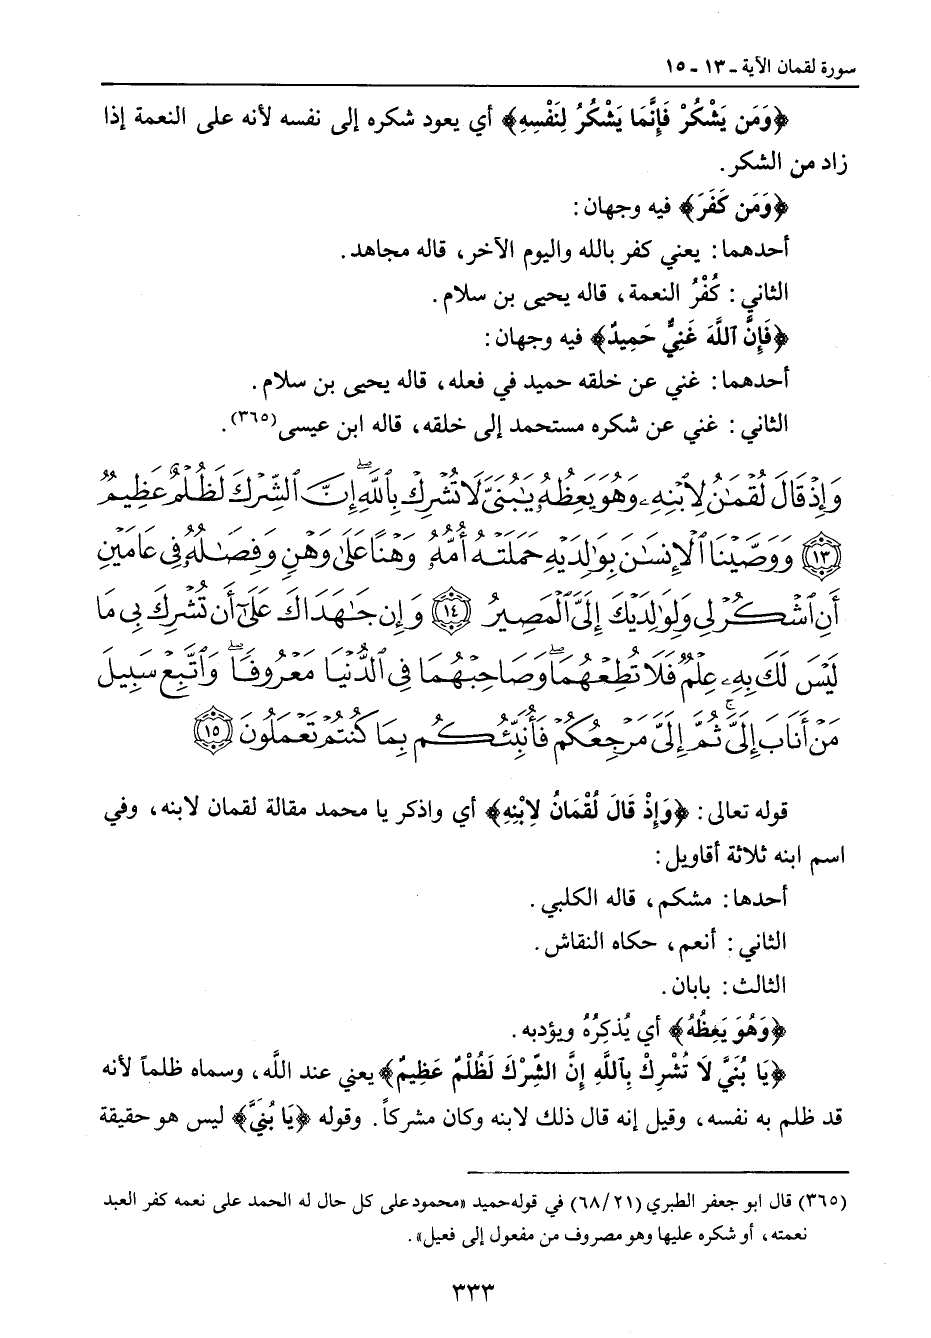 سورة لقمان الآية ـ ١٣ ـ ١٥
﴿وَمَن يَشْكُرْ فَإِنَّمَا يَشْكُرُ لِنَفْسِهِ﴾ أي يعود شكره إلى نفسه لأنه على النعمة إذا
زاد من الشكر.
﴿وَمَن كَفَرَ﴾ فيه وجهان:
أحدهما: يعني كفر بالله واليوم الآخر، قاله مجاهد.
الثاني: كُفْرُ النعمة، قاله يحيى بن سلام.
﴿فَإِنَّ ٱللَّهَ غَنِيٌّ حَمِيدٌ﴾ فيه وجهان:
أحدهما: غني عن خلقه حميد في فعله، قاله يحيى بن سلام.
الثاني: غني عن شكره مستحمد إلى خلقه، قاله ابن عيسى(٣٦٥).
وَإِذْ قَالَ لُقْمَٰنُ لِٱبْنِهِۦ وَهُوَ يَعِظُهُۥ يَٰبُنَىَّ لَا تُشْرِكْ بِٱللَّهِ ۖ إِنَّ ٱلشِّرْكَ لَظُلْمٌ عَظِيمٌ
١٣ وَوَصَّيْنَا ٱلْإِنسَٰنَ بِوَٰلِدَيْهِ حَمَلَتْهُ أُمُّهُۥ وَهْنًا عَلَىٰ وَهْنٍ وَفِصَٰلُهُۥ فِى عَامَيْنِ
أَنِ ٱشْكُرْ لِى وَلِوَٰلِدَيْكَ إِلَىَّ ٱلْمَصِيرُ ١٤ وَإِن جَٰهَدَاكَ عَلَىٰٓ أَن تُشْرِكَ بِى مَا
لَيْسَ لَكَ بِهِۦ عِلْمٌ فَلَا تُطِعْهُمَا ۖ وَصَاحِبْهُمَا فِى ٱلدُّنْيَا مَعْرُوفًا ۖ وَٱتَّبِعْ سَبِيلَ
مَنْ أَنَابَ إِلَىَّ ۚ ثُمَّ إِلَىَّ مَرْجِعُكُمْ فَأُنَبِّئُكُم بِمَا كُنتُمْ تَعْمَلُونَ ١٥
قوله تعالى: ﴿وَإِذْ قَالَ لُقْمَانُ لِابْنِهِ﴾ أي واذكر يا محمد مقالة لقمان لابنه، وفي
اسم ابنه ثلاثة أقاويل:
أحدها: مشكم، قاله الكلبي.
الثاني: أنعم، حكاه النقاش.
الثالث: بابان.
﴿وَهُوَ يَعِظُهُ﴾ أي يُذكِرُهُ ويؤدبه.
﴿يَا بُنَيَّ لَا تُشْرِكْ بِٱللَّهِ إِنَّ الشِّرْكَ لَظُلْمٌ عَظِيمٌ﴾ يعني عند اللَّه، وسماه ظلماً لأنه
قد ظلم به نفسه، وقيل إنه قال ذلك لابنه وكان مشركاً. وقوله ﴿يَا بُنَيَّ﴾ ليس هو حقيقة
(٣٦٥) قال ابو جعفر الطبري (٦٨/٢١) في قوله حميد «محمود على كل حال له الحمد على نعمه كفر العبد
نعمته، أو شكره عليها وهو مصروف من مفعول إلى فعيل».
٣٣٣